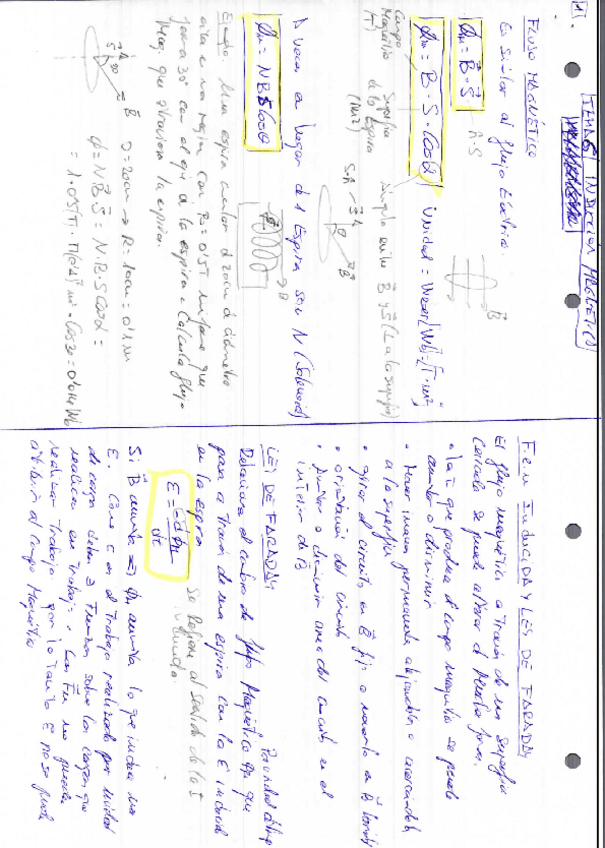 1
TEMA 6 INDUCCION MAGNETICA
FLUJO MAGNÉTICO
Es similar al flujo Eléctrico.
Φm = B · S
Φm = B · S · Cosα Unidad = Weber [Wb] = [T · m²]
Campo Magnético (T)
Superficie de la Espira (m²)
Angulo entre B y S (⊥ a la superficie)
A veces en lugar de 1 Espira son N (Solenoide)
Φm = NBS Cosα
Ejemplo: Una espira circular de 20cm de diámetro
gira en una region con B = 0'5T uniforme que
forma 30° con el eje de la espira. Calcula flujo
Mag. que atraviesa la espira.
D = 20cm → R = 10cm = 0'1m
Φ = N·B·S = N·B·S Cosα =
= 1·0'5(T) · π(0'1)² m² · Cos30 = 0'014 Wb
F.e.m INDUCIDA Y LEY DE FARADAY
El flujo magnético a través de una superficie
cerrada se puede alterar de muchas formas.
• la I que produce el campo magnético se puede
aumentar o disminuir
• Mover imanes permanentes alejandolos o acercandolos
a la superficie
• girar el circuito en B fijo o moverlo en B
orientación del circuito
• Aumentar o disminuir area del circuito en el
interior de B
LEY DE FARADAY
Relaciona el cambio de flujo Magnético Φm que
pasa a través de una espira con la E inducida
en la espira
E = -dΦm / dt
Se Refiere al sentido de la I
inducida.
Si B aumenta ⇒ Φm aumenta lo que induce una
E. Como E es el trabajo realizado por unidad
de carga, deben existir Fuerzas sobre las cargas que
realicen un trabajo. Las Fm no pueden
realizar trabajo por lo tanto E no se puede
atribuir al campo Magnético